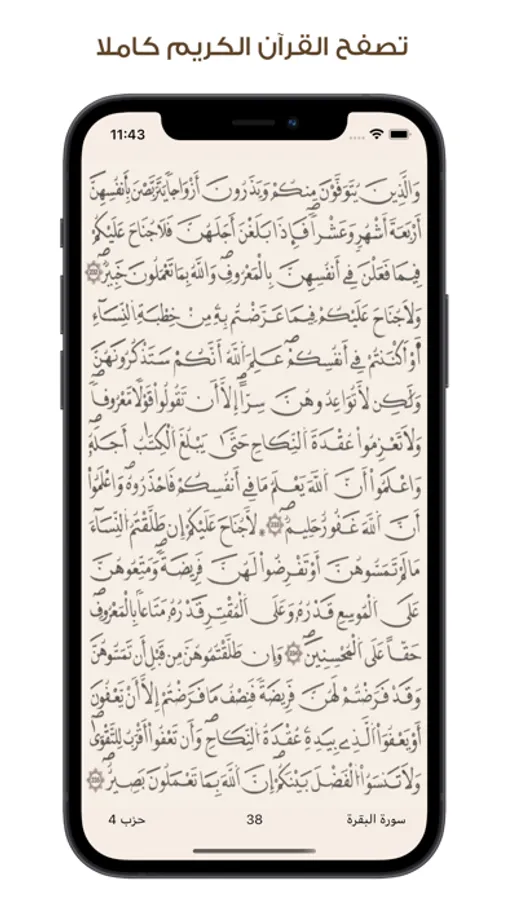 تصفح القرآن الكريم كاملا
11:43
وَالذِينَ يُتَوَفَّوْنَ مِنكُمْ وَيَذَرُونَ أَزْوَاجاً يَتَرَبَّصْنَ بِأَنفُسِهِنَّ
أَرْبَعَةَ أَشْهُرٍ وَعَشْراً فَإِذَا بَلَغْنَ أَجَلَهُنَّ فَلَا جُنَاحَ عَلَيْكُمْ
فِيمَا فَعَلْنَ فِي أَنفُسِهِنَّ بِالْمَعْرُوفِ وَاللَّهُ بِمَا تَعْمَلُونَ خَبِيرٌ
وَلَا جُنَاحَ عَلَيْكُمْ فِيمَا عَرَّضْتُم بِهِ مِنْ خِطْبَةِ النِّسَاءِ
أَوْ أَكْنَنتُمْ فِي أَنفُسِكُمْ عَلِمَ اللَّهُ أَنَّكُمْ سَتَذْكُرُونَهُنَّ
وَلَكِن لَّا تُوَاعِدُوهُنَّ سِرّاً إِلَّا أَن تَقُولُوا قَوْلًا مَّعْرُوفاً
وَلَا تَعْزِمُوا عُقْدَةَ النِّكَاحِ حَتَّىٰ يَبْلُغَ الْكِتَٰبُ أَجَلَهُ
وَاعْلَمُوا أَنَّ اللَّهَ يَعْلَمُ مَا فِي أَنفُسِكُمْ فَاحْذَرُوهُ وَاعْلَمُوا
أَنَّ اللَّهَ غَفُورٌ حَلِيمٌ لَّا جُنَاحَ عَلَيْكُمْ إِن طَلَّقْتُمُ النِّسَاءَ
مَا لَمْ تَمَسُّوهُنَّ أَوْ تَفْرِضُوا لَهُنَّ فَرِيضَةً وَمَتِّعُوهُنَّ
عَلَى الْمُوسِعِ قَدْرُهُ وَعَلَى الْمُقْتِرِ قَدْرُهُ مَتَاعاً بِالْمَعْرُوفِ
حَقّاً عَلَى الْمُحْسِنِينَ وَإِن طَلَّقْتُمُوهُنَّ مِن قَبْلِ أَن تَمَسُّوهُنَّ
وَقَدْ فَرَضْتُمْ لَهُنَّ فَرِيضَةً فَنِصْفُ مَا فَرَضْتُمْ إِلَّا أَنْ يَعْفُونَ
أَوْ يَعْفُوَا الَّذِي بِيَدِهِ عُقْدَةُ النِّكَاحِ وَأَن تَعْفُوا أَقْرَبُ لِلتَّقْوَىٰ
وَلَا تَنسَوُا الْفَضْلَ بَيْنَكُمْ إِنَّ اللَّهَ بِمَا تَعْمَلُونَ بَصِيرٌ
سورة البقرة 38 حزب 4